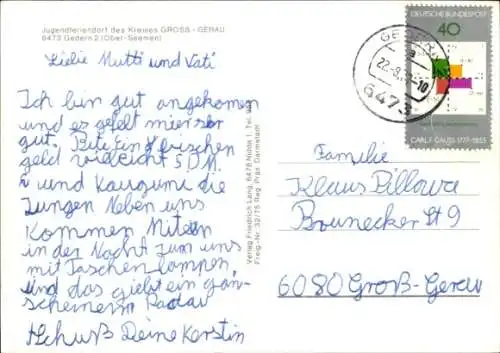 Jugendferiendorf des Kreises GROSS - GERAU
6473 Gedern 2 (Ober-Seemen)
Liebe Mutti und Vati
Ich bin gut angekommen
und es gefelt mir ser
gut. Bitte Ein bischen
geld vieleicht 5 DM
und Kaugumi die
Jungen Neben uns
kommen Miten
in der Nacht zum uns
mit Taschen lampen,
und das giebt ein gan-
schenem Radau
tschuß Deine Kerstin
Verlag Friedrich Lang, 6478 Nidda 1, Tel.
Freig.-Nr. 32/75 Reg. Präs. Darmstadt
DEUTSCHE BUNDESPOST
40
CARL F. GAUSS 1777-1855
GEDERN
a
22.-8.
-10
6473
Familie
Klaus Pillowa
Brunecker St 9
6080 Groß-Gerau